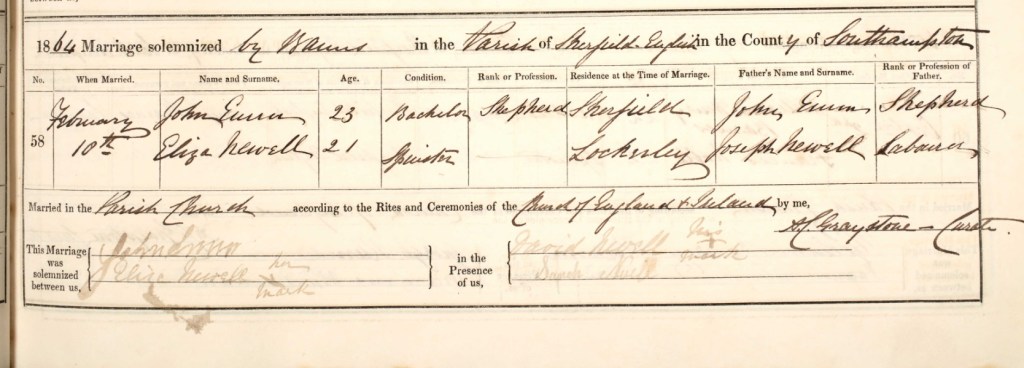 1864 Marriage solemnized by Banns in the Parish of Sherfield English in the County of Southampton
No. When Married. Name and Surname. Age. Condition. Rank or Profession. Residence at the Time of Marriage. Father's Name and Surname. Rank or Profession of Father.
58 February 10th John 23 Bachelor Shepherd Sherfield John Shepherd
Eliza Newell 21 Spinster Lockerley Joseph Newell Labourer
Married in the Parish Church according to the Rites and Ceremonies of the Church of England & Ireland by me,
Graystone - Curate
This Marriage was solemnized between us, John
Eliza Newell her mark
in the Presence of us, David Newell his mark
Sarah